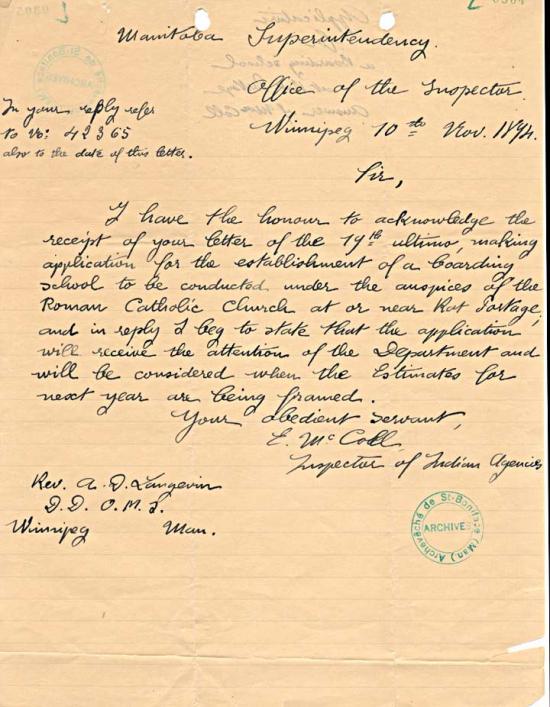 Manitoba Superintendency.
Office of the Inspector
Winnipeg 10th Nov. 1894.
In your reply refer
to No: 42365
also to the date of this letter.
Sir,
I have the honour to acknowledge the
receipt of your letter of the 19th ultimo, making
application for the establishment of a boarding
school to be conducted under the auspices of the
Roman Catholic Church at or near Rat Portage,
and in reply I beg to state that the application
will receive the attention of the Department and
will be considered when the Estimates for
next year are being framed.
Your obedient servant,
E. McColl
Inspector of Indian Agencies
Rev. A. D. Langevin
D.D. O.M.I.
Winnipeg Man.
Archevêché de St-Boniface (Man)
ARCHIVES